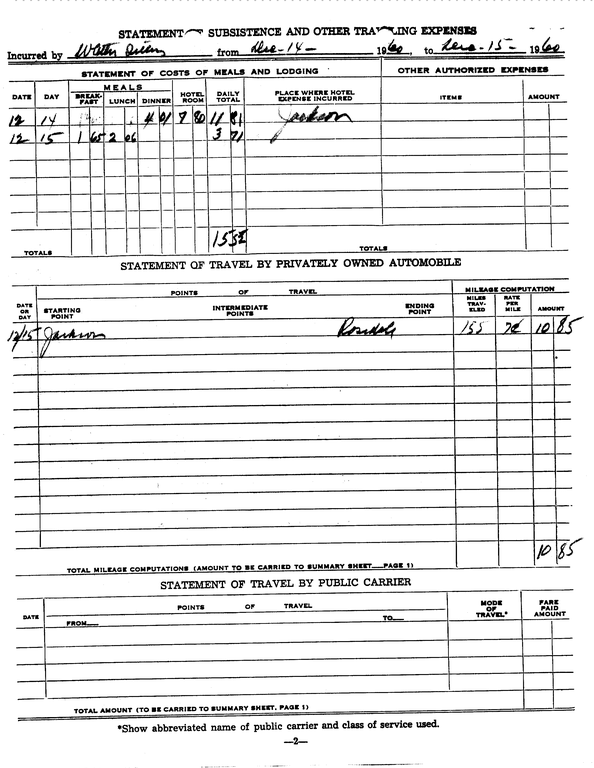 STATEMENT SUBSISTENCE AND OTHER TRAVELING EXPENSES
Incurred by from Dec-14- 1960, to Dec-15- 1960
STATEMENT OF COSTS OF MEALS AND LODGING OTHER AUTHORIZED EXPENSES
DATE DAY MEALS BREAK-FAST LUNCH DINNER HOTEL ROOM DAILY TOTAL PLACE WHERE HOTEL EXPENSE INCURRED ITEMS AMOUNT
12 14 4 01 7 80 11 81 Jackson
12 15 1 65 2 06 3 71
15 52
TOTALS TOTALS
STATEMENT OF TRAVEL BY PRIVATELY OWNED AUTOMOBILE
POINTS OF TRAVEL MILEAGE COMPUTATION
DATE OR DAY STARTING POINT INTERMEDIATE POINTS ENDING POINT MILES TRAV-ELED RATE PER MILE AMOUNT
12/15 Jackson Rosedale 155 7¢ 10 85
10 85
TOTAL MILEAGE COMPUTATIONS (AMOUNT TO BE CARRIED TO SUMMARY SHEET PAGE 1)
STATEMENT OF TRAVEL BY PUBLIC CARRIER
DATE POINTS OF TRAVEL MODE OF TRAVEL* FARE PAID AMOUNT
FROM TO
TOTAL AMOUNT (TO BE CARRIED TO SUMMARY SHEET, PAGE 1)
*Show abbreviated name of public carrier and class of service used.
—2—